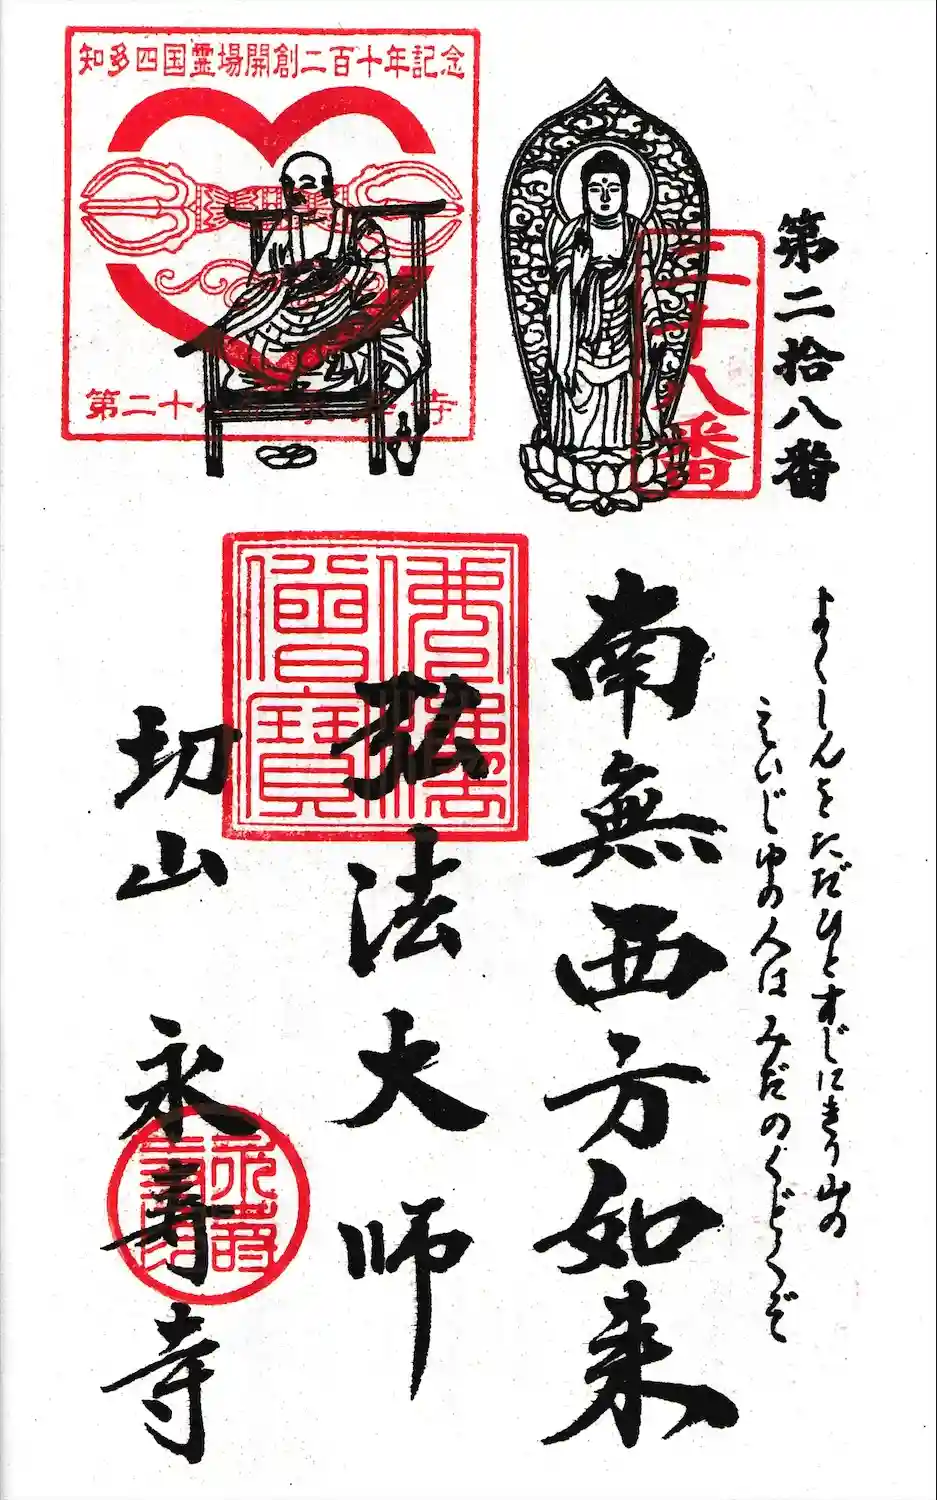 第二拾八番
二十八番
よくしんをただひとすじにきり山の
えいじゆの人はみだのくどくぞ
南無西方如来
弘法大師
切山 永寿寺
知多四国霊場開創二百十年記念
第二十
寺
佛法僧寳